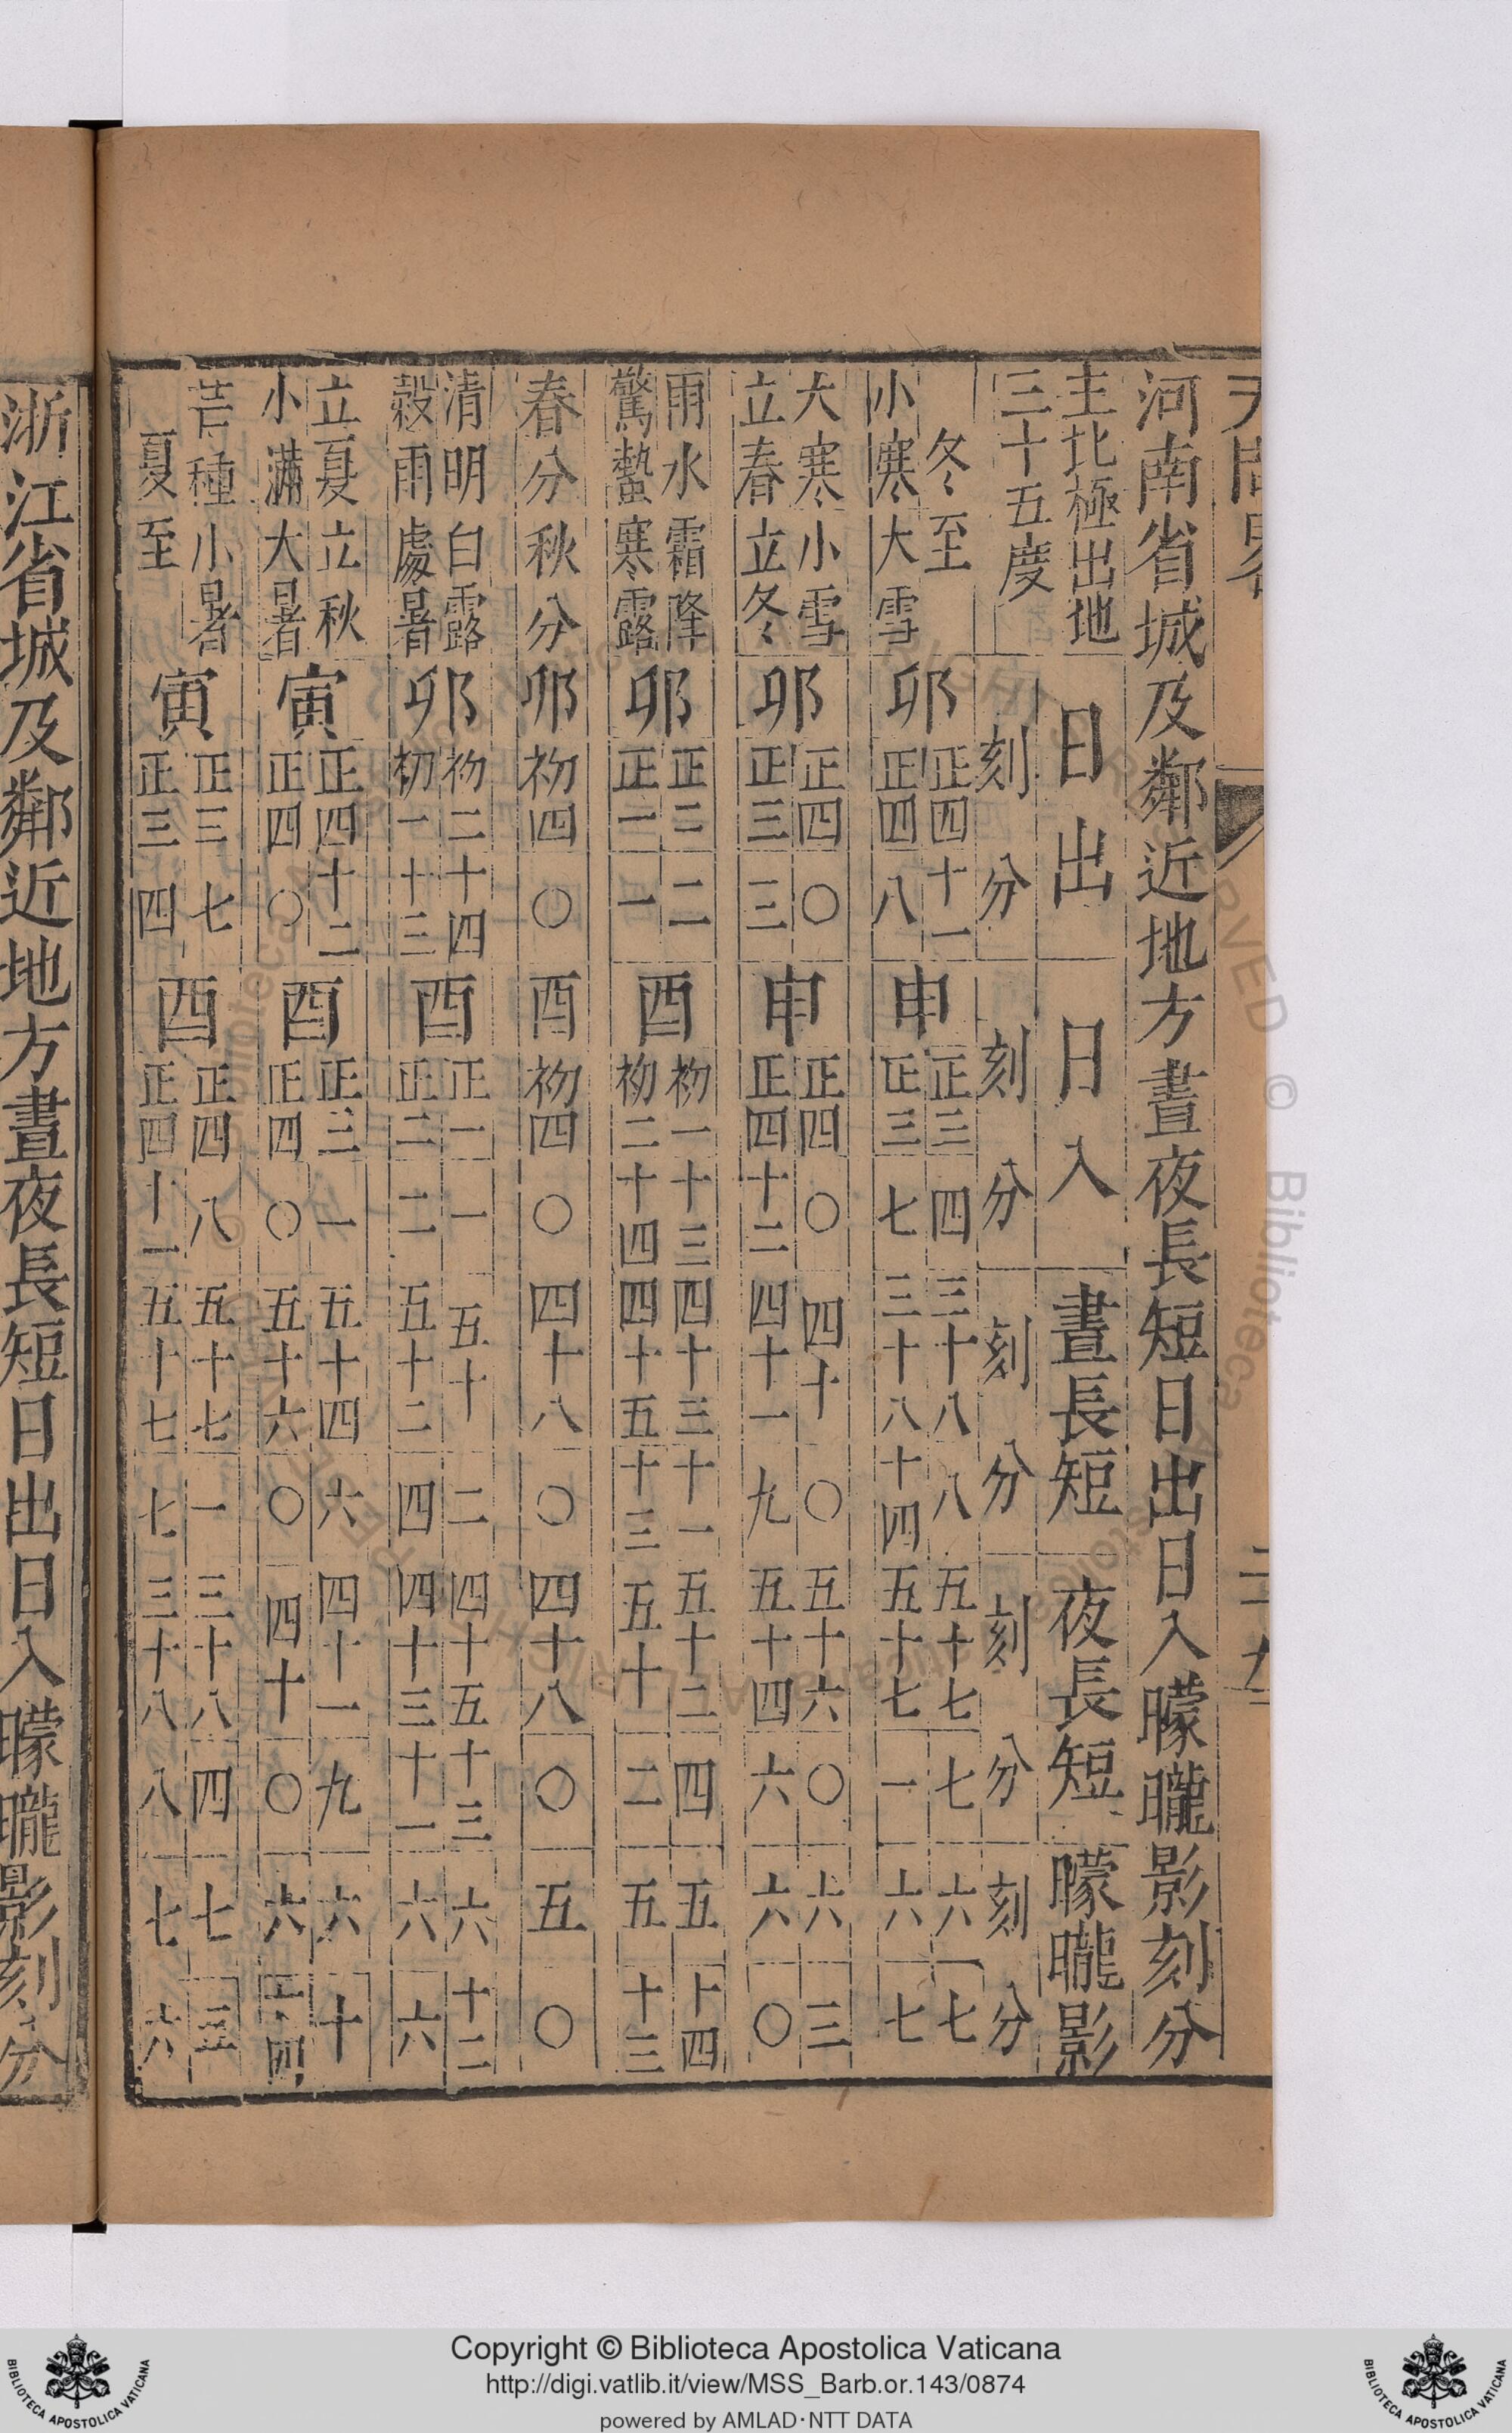 河南省城及鄰近地方晝夜長短日出日入曚曨影刻分
主北極出地
三十五度
日出 日入 晝長短 夜長短 曚曨影
刻 分 刻 分 刻 分 刻 分 刻 分
冬至 卯 正四 十一 申 正三 四 三十八 八 五十七 七 六 七
小寒 大雪 正四 八 正三 七 三十八 十四 五十七 一 六 七
大寒 小雪 卯 正四 〇 申 正四 〇 四十 〇 五十六 〇 六 三
立春 立冬 正三 三 正四 十二 四十一 九 五十四 六 六 〇
雨水 霜降 卯 正二 二 酉 初一 十三 四十三 十一 五十二 四 五 十四
驚蟄 寒露 正一 一 初二 十四 四十五 十三 五十 二 五 十三
春分 秋分 卯 初四 〇 酉 初四 〇 四十八 〇 四十八 〇 五 〇
清明 白露 卯 初二 十四 酉 正一 一 五十 二 四十五 十三 六 十二
穀雨 處暑 初一 十三 正二 二 五十二 四 四十三 十一 六 六
立夏 立秋 寅 正四 十二 酉 正三 一 五十四 六 四十一 九 六 十
小滿 大暑 正四 〇 正四 〇 五十六 〇 四十 〇 六
芒種 小暑 寅 正三 七 酉 正四 八 五十七 一 三十八 四 七 三
夏至 正三 四 正四 十一 五十七 七 三十八 八 七 六
浙江省城及鄰近地方晝夜長短日出日入曚曨影刻分
Copyright © Biblioteca Apostolica Vaticana
http://digi.vatlib.it/view/MSS_Barb.or.143/0874
powered by AMLAD·NTT DATA
BIBLIOTECA APOSTOLICA VATICANA
BIBLIOTECA APOSTOLICA VATICANA